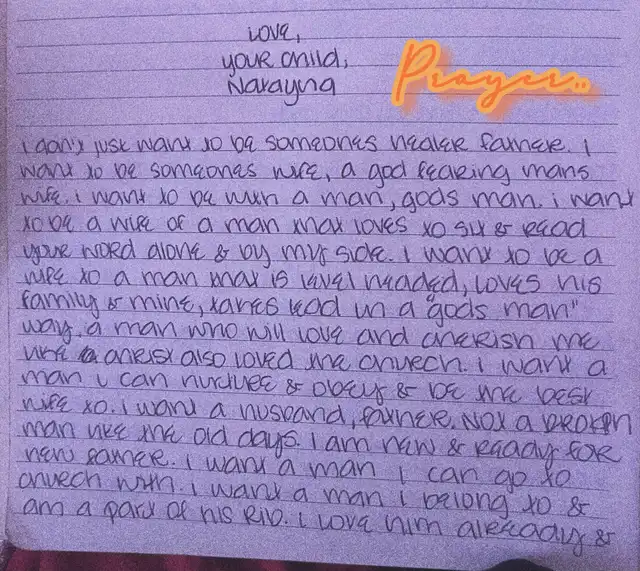 Love,
your child,
Narayna
Prayer..
i don't just want to be someones healer father. I
want to be someones wife, a god fearing mans
wife. i want to be with a man, gods man. i want
to be a wife of a man that loves to sit & read
your word alone & by my side. I want to be a
wife to a man that is level headed, loves his
family & mine, takes lead in a "gods man"
way. a man who will love and cherish me
like christ also loved the church. i want a
man i can nurture & obey & be the best
wife to. i want a husband, father. Not a broken
man like the old days. I am new & ready for
new father. i want a man i can go to
church with. i want a man i belong to &
am a part of his rib. i love him already &